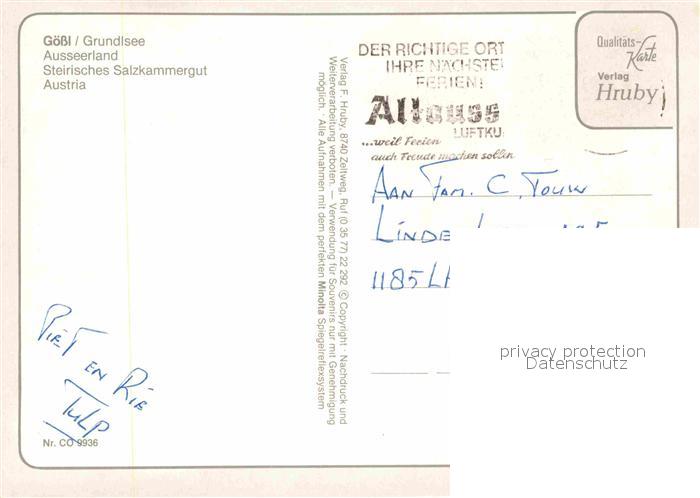 Gößl / Grundlsee
Ausseerland
Steirisches Salzkammergut
Austria
DER RICHTIGE ORT
IHRE NÄCHSTE
FERIEN!
Altauss
LUFTKU
...weil Ferien
auch Freude machen sollen
Qualitäts-
Karte
Verlag
Hruby
Verlag F. Hruby, 8740 Zeltweg, Ruf (0 35 77) 22 292 © Copyright · Nachdruck und
Weiterverarbeitung verboten. — Verwendung für Souvenirs nur mit Genehmigung
möglich. · Alle Aufnahmen mit dem perfekten Minolta Spiegelreflexsystem
AAN FAM. C. TOUW
LINDE
1185L
PIET EN RIE
TULP
Nr. CO 9936
privacy protection
Datenschutz